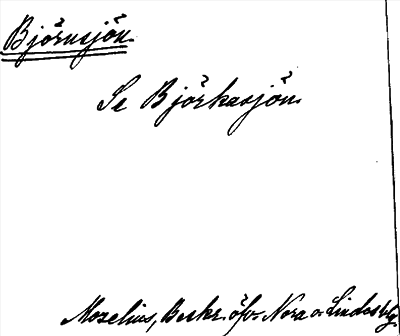 Björnsjön.
Se Björkasjön.
Mozelius, Beskr. öfver Nora o. Lindesbg.